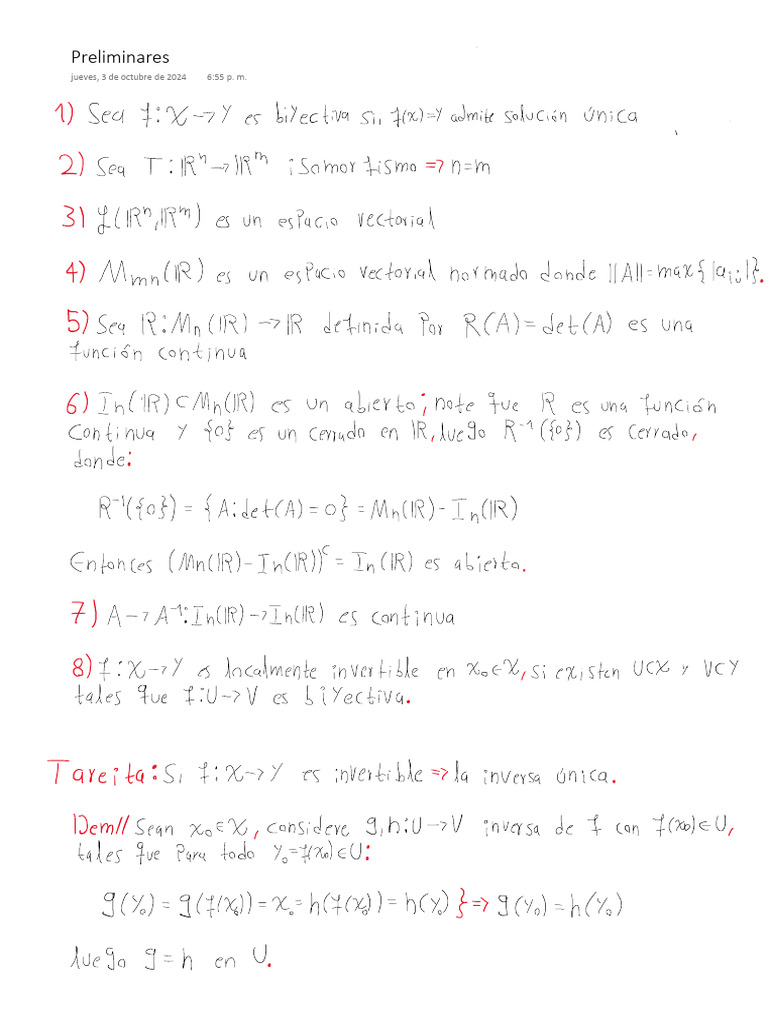 Preliminares
jueves, 3 de octubre de 2024 6:55 p. m.
1) Sea f: X → Y es biyectiva sii f(x)=y admite solución única
2) Sea T: ℝⁿ → ℝᵐ isomorfismo => n=m
3) ℒ(ℝⁿ, ℝᵐ) es un espacio vectorial
4) Mmn(ℝ) es un espacio vectorial normado donde ||A||=max{|aij|}.
5) Sea R: Mn(ℝ) → ℝ definida por R(A)=det(A) es una
función continua
6) In(ℝ) ⊂ Mn(ℝ) es un abierto; note que R es una función
continua y {0} es un cerrado en ℝ, luego R⁻¹({0}) es cerrado,
donde:
R⁻¹({0}) = {A: det(A) = 0} = Mn(ℝ) - In(ℝ)
Entonces (Mn(ℝ) - In(ℝ))ᶜ = In(ℝ) es abierto.
7) A → A⁻¹: In(ℝ) → In(ℝ) es continua
8) f: X → Y es localmente invertible en x₀ ∈ X, si existen U⊂X y V⊂Y
tales que f: U → V es biyectiva.
Tareita: Si f: X → Y es invertible => la inversa única.
Dem// Sean x₀ ∈ X, considere g, h: U → V inversa de f con f(x₀) ∈ U,
tales que para todo y₀=f(x₀) ∈ U:
g(y₀) = g(f(x₀)) = x₀ = h(f(x₀)) = h(y₀) } => g(y₀) = h(y₀)
luego g = h en U.